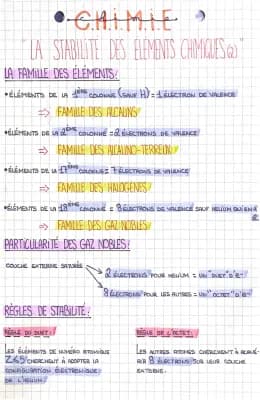 C.H.I.M.I.E
"LA STABILITÉ DES ÉLÉMENTS CHIMIQUES (2)"
LA FAMILLE DES ÉLÉMENTS:
• ÉLÉMENTS DE LA 1ÈRE COLONNE (SAUF H) = 1 ÉLECTRON DE VALENCE
⇒ FAMILLE DES ALCALINS
• ÉLÉMENTS DE LA 2ÈME COLONNE = 2 ÉLECTRONS DE VALENCE
⇒ FAMILLE DES ALCALINO-TERREUX
• ÉLÉMENTS DE LA 17ÈME COLONNE = 7 ÉLECTRONS DE VALENCE
⇒ FAMILLE DES HALOGÈNES
• ÉLÉMENTS DE LA 18ÈME COLONNE = 8 ÉLECTRONS DE VALENCE SAUF HELIUM QUI EN A 2
⇒ FAMILLE DES GAZ NOBLES
PARTICULARITÉ DES GAZ NOBLES:
COUCHE EXTERNE SATURÉE
2 ÉLECTRONS POUR HELIUM = UN "DUET" D'E-
8 ÉLECTRONS POUR LES AUTRES = UN "OCTET" D'E-
RÈGLES DE STABILITÉ:
RÈGLE DU DUET:
LES ÉLÉMENTS DE NUMÉRO ATOMIQUE
Z≤5 CHERCHENT À ADOPTER LA
CONFIGURATION ÉLECTRONIQUE
DE L'HELIUM
RÈGLE DE L'OCTET:
LES AUTRES ATOMES CHERCHENT À
8 ÉLECTRONS SUR LEUR COUCHE
EXTERNE.